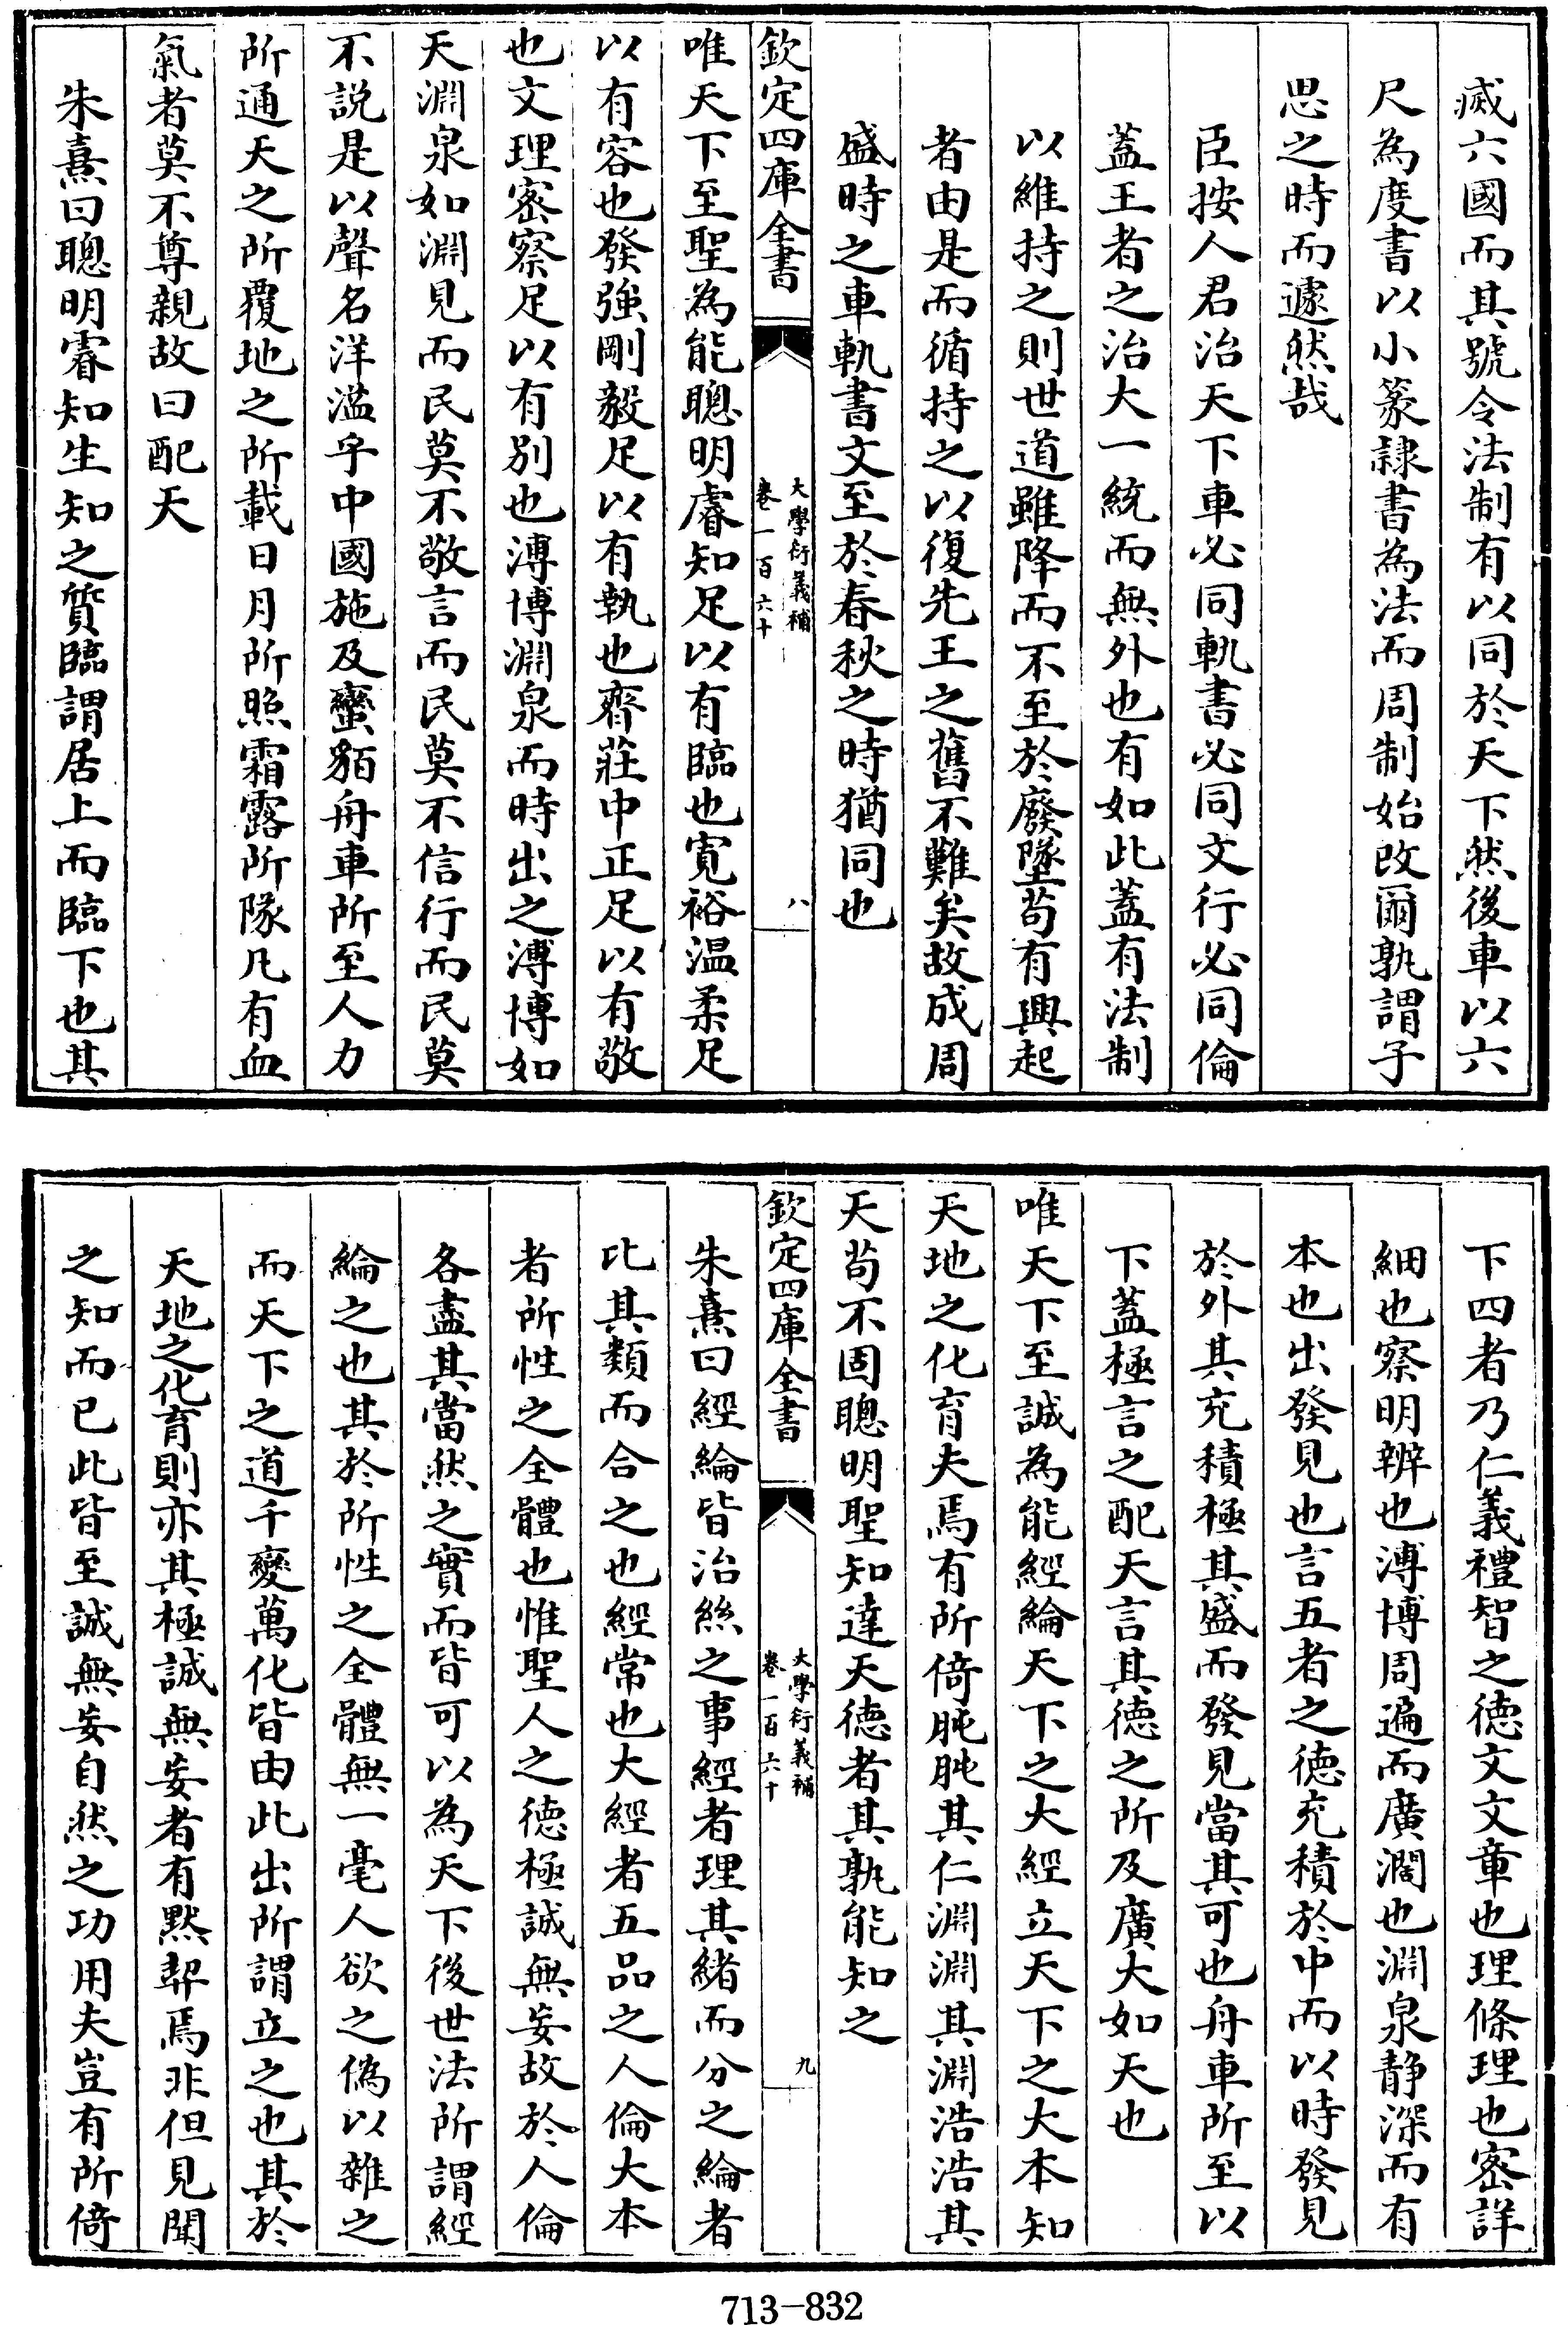 滅六國而其號令法制有以同於天下然後車以六
尺為度書以小篆隷書為法而周制始改爾孰謂子
思之時而遽然哉
臣按人君治天下車必同軌書必同文行必同倫
蓋王者之治大一統而無外也有如此蓋有法制
以維持之則世道雖降而不至於廢墜苟有興起
者由是而循持之以復先王之舊不難矣故成周
盛時之車軌書文至於春秋之時猶同也
欽定四庫全書
大學衍義補
卷一百六十
八
唯天下至聖為能聰明睿知足以有臨也寛裕温柔足
以有容也發強剛毅足以有執也齊莊中正足以有敬
也文理密察足以有別也溥博淵泉而時出之溥博如
天淵泉如淵見而民莫不敬言而民莫不信行而民莫
不説是以聲名洋溢乎中國施及蠻貊舟車所至人力
所通天之所覆地之所載日月所照霜露所隊凡有血
氣者莫不尊親故曰配天
朱熹曰聰明睿知生知之質臨謂居上而臨下也其
下四者乃仁義禮智之徳文文章也理條理也密詳
細也察明辨也溥博周遍而廣濶也淵泉靜深而有
本也出發見也言五者之徳充積於中而以時發見
於外其充積極其盛而發見當其可也舟車所至以
下蓋極言之配天言其徳之所及廣大如天也
唯天下至誠為能經綸天下之大經立天下之大本知
天地之化育夫焉有所倚肫肫其仁淵淵其淵浩浩其
天苟不固聰明聖知達天徳者其孰能知之
欽定四庫全書
大學衍義補
卷一百六十
九
朱熹曰經綸皆治絲之事經者理其緒而分之綸者
比其類而合之也經常也大經者五品之人倫大本
者所性之全體也惟聖人之徳極誠無妄故於人倫
各盡其當然之實而皆可以為天下後世法所謂經
綸之也其於所性之全體無一毫人欲之偽以雜之
而天下之道千變萬化皆由此出所謂立之也其於
天地之化育則亦其極誠無妄者有黙契焉非但見聞
之知而已此皆至誠無妄自然之功用夫豈有所倚
713-832